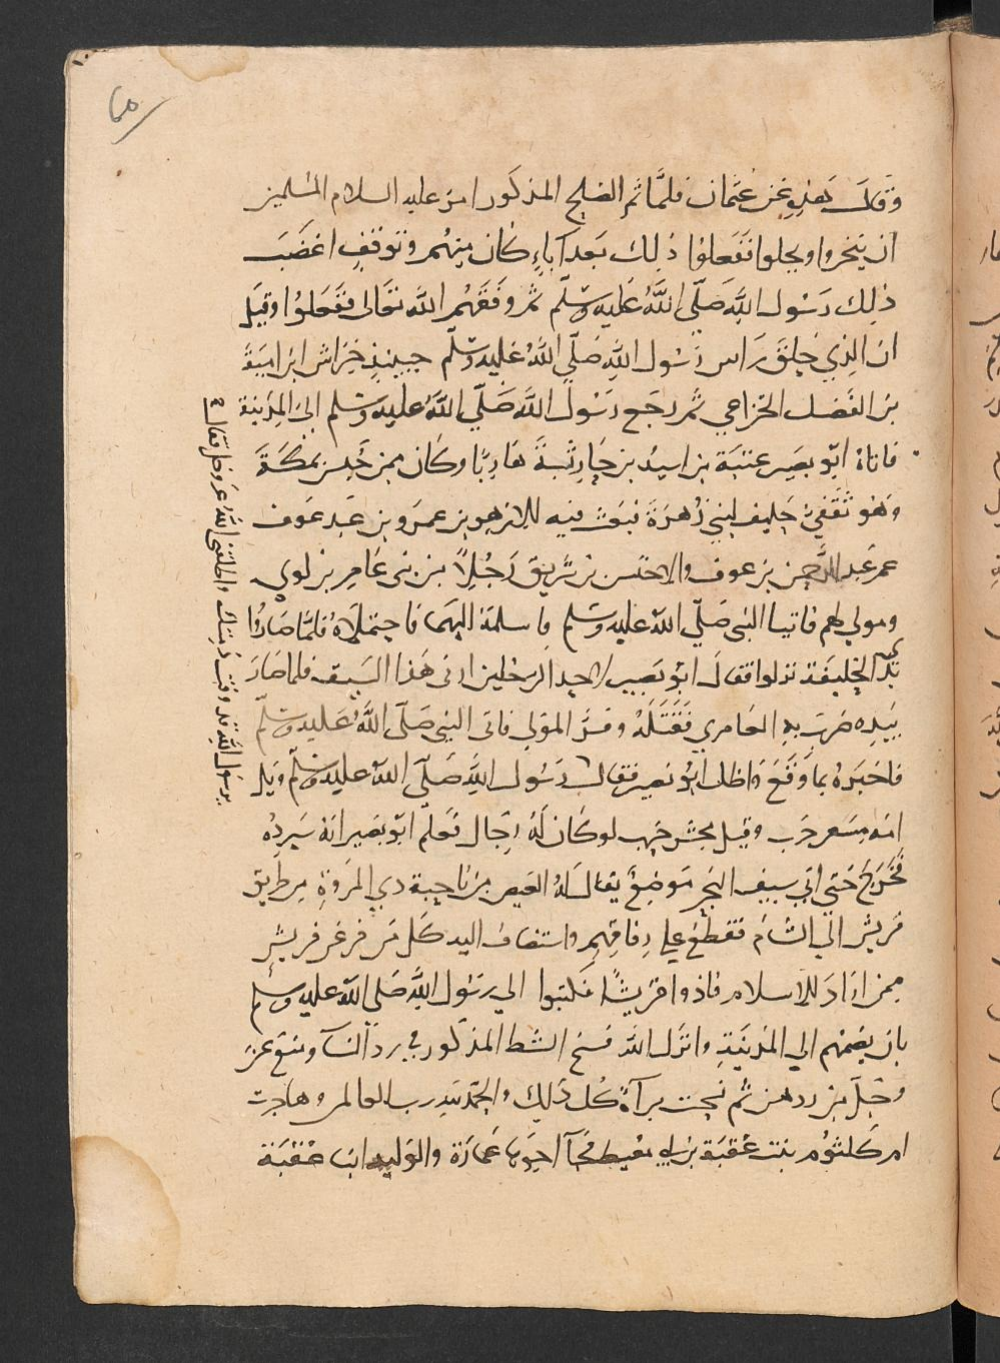 وقال هذه عن عثمان فلما تم الصلح المذكور امر عليه السلام المسلمين
ان ينحروا ويحلوا ففعلوا ذلك بعد آباء كان منهم وتوقف اغضب
ذلك رسول الله صلى الله عليه وسلم ثم وفقهم الله تعالى ففعلوا وقيل
ان الذي حلق راس رسول الله صلى الله عليه وسلم حينيذ خراش ابن امية
بن الفضل الخزاعي ثم رجع رسول الله صلى الله عليه وسلم الى المدينة
فاتاه ابو بصير عتبة بن اسيد بن جارية هاربا وكان ممن حبس بمكة
وهو ثقفي حليف لبني زهرة فبعث فيه الازهر بن عمرو بن عبد عوف
عم عبد الرحمن بن عوف والاخنس بن شريق رجلا من بني عامر بن لوي
ومولي لهم فاتيا النبي صلى الله عليه وسلم فاسلمة اليهما فاحتملاه فلما صاروا
بذي الحليفة نزلوا فقال ابو بصير لاحد الرجلين ارني هذا السيف فلما صار
بيده ضرب به العامري فقتله وفر المولي فاتى النبي صلى الله عليه وسلم
فاخبره بما وقع واظل ابو بصير فقال رسول الله صلى الله عليه وسلم ويل
امه مسعر حرب وقيل محش حرب لو كان له رجال فعلم ابو بصير انه سيرده
فخرج حتي اتي سيف البحر موضع يقال له العيص من ناحية ذي المروة من طريق
قريش الي الشام فقطع علي رفاقهم واستضاف اليه كل من فر عن قريش
ممن اراد الاسلام فاذوا قريشا فكتبوا الي رسول الله صلى الله عليه وسلم
بان يضمهم الي المدينة وانزل الله فسخ الشرط المذكور في رد النسآ ومنع عز
وجل من ردهن ثم نسخت برآة كل ذلك والحمد لله رب العالمين وهاجرت
ام كلثوم بنت عقبة بن ابي معيط فجآ اخوها عمارة والوليد ابنا عقبة
يرسول الله قد وفت ذمتك واطلقني الله عز وجل فقال